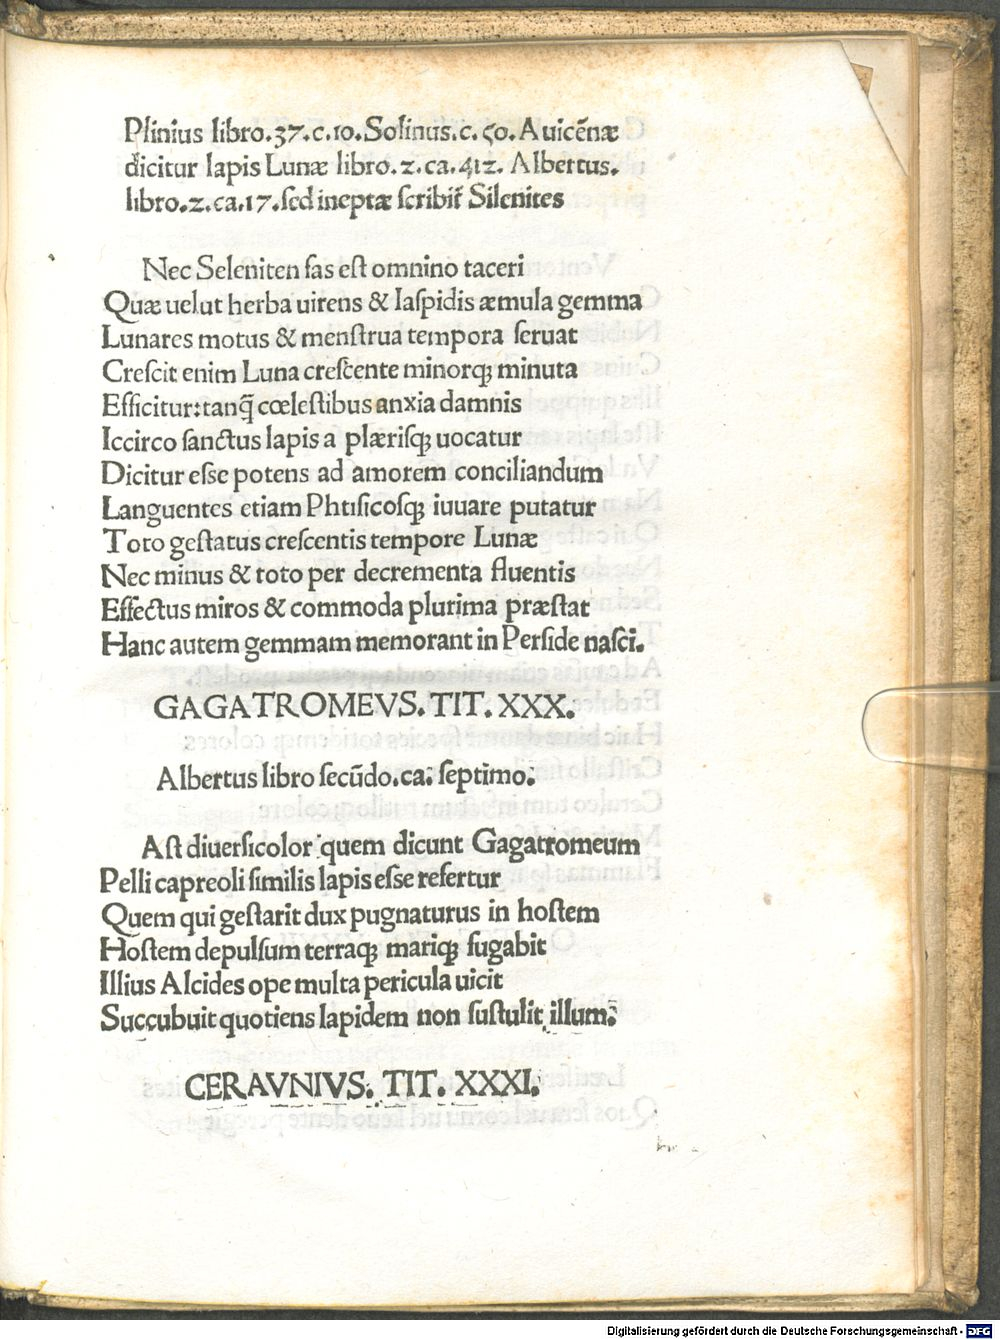 Plinius libro.37.c.10.Solinus.c.50.Auicēnæ
dicitur lapis Lunæ libro.2.ca.412. Albertus.
libro.2.ca.17.sed ineptæ scribit᷑ Silenites
Nec Seleniten fas est omnino taceri
Quæ uelut herba uirens & Iaspidis æmula gemma
Lunares motus & menstrua tempora seruat
Crescit enim Luna crescente minorq; minuta
Efficitur: tanq̄ cœlestibus anxia damnis
Iccirco sanctus lapis a plærisq; uocatur
Dicitur esse potens ad amorem conciliandum
Languentes etiam Phtisicosq; iuuare putatur
Toto gestatus crescentis tempore Lunæ
Nec minus & toto per decrementa fluentis
Effectus miros & commoda plurima præstat
Hanc autem gemmam memorant in Perside nasci.
GAGATROMEVS. TIT. XXX.
Albertus libro secūdo.ca. septimo.
Ast diuersicolor quem dicunt Gagatromeum
Pelli capreoli similis lapis esse refertur
Quem qui gestarit dux pugnaturus in hostem
Hostem depulsum terraq; mariq; fugabit
Illius Alcides ope multa pericula uicit
Succubuit quotiens lapidem non sustulit illum.
CERAVNIVS. TIT. XXXI.
Digitalisierung gefördert durch die Deutsche Forschungsgemeinschaft - DFG